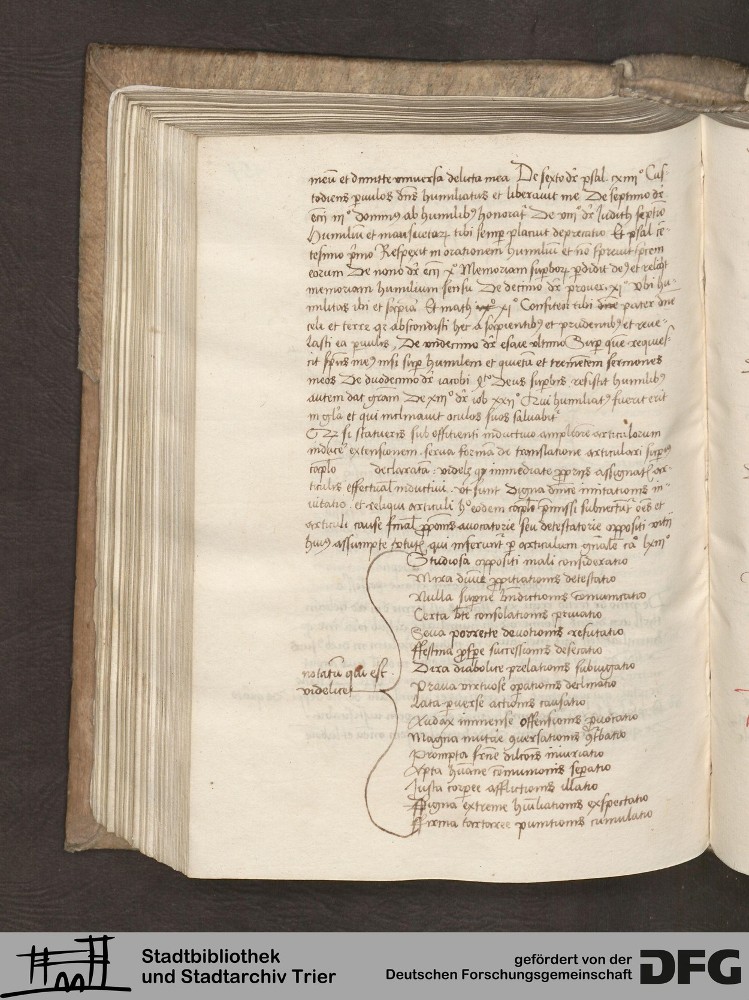 meū et dimitte vniversa delicta mea De sexto dr psal. cxiiij° Cus
todiens pvulos dns humiliatus et liberavit me De septimo dr
ecci iij° dominus ab humilibꝫ honorat De viij° dr Judith septīo
Humiliū et mansuetorꝫ tibi semp placuit deprecatio Et psal cē
tesimo primo Respexit in orationem humiliū et nō sprevit precem
eorum De nono dr ecci x° Memoriam supborꝫ pdidit deꝰ et reliqt
memoriam humilium sensu De decimo dr prouer. xi° vbi hu
militas ibi et sapiētia Et math xi° Confiteor tibi pater dne
celi et terre qr abscondisti hec a sapientibꝫ et prudentibꝫ et reue
lasti ea pvulis, De vndecimo dr esaye vltimo Sup quē requies
cit spūs meꝰ nisi sup humilem et quietū et trementem sermones
meos De duodecimo dr iacobi Deus supbis resistit humilibꝫ
autem dat grām De xiij° dr iob xxij° Qui humiliatꝰ fuerit erit
in gla et qui inclinauit oculos suos saluabit
si statueris sub effitienti inductiuo ampliorē articulorum
inducē extensionem. serua forma de translatione articulari
caplo declaratam. videlꝫ immediate assignatis ar
ticulis effectual inductiui. vt sunt Digna diuine imitationis in
uitatio. et reliqui articuli eodem caplo pmissi subnectūt oēs et
articuli cause finalꝫ auocatorie seu detestatorie oppositi vitii
huiꝰ assumpte qui inserunt p articulum gnale ca° lxiij°
Studiosa oppositi mali consideratio
Mira diuīe ppitiationis detestatio
Nulla supne bndictionis comunicatio
Certa bte consolationis priuatio
Seua porrecte deuotionis refutatio
ffestina pspe successionis desecatio
notatū qui est Dira diabolice prelationis subiugatio
videlicet Praua virtuose opationis declinatio
Lata puerse actionis causatio
Audax immense offensionis puocatio
Magna mutue quersationis turbatio
Prompta frne dilcōnis iniuriatio
Apta huāne cōmunionis sepatio
Justa corpee afflictionis illatio
Digna extreme huiliationis exspectatio
Firma tartaree punitionis cumulatio
Stadtbibliothek
und Stadtarchiv Trier
gefördert von der
Deutschen Forschungsgemeinschaft
DFG